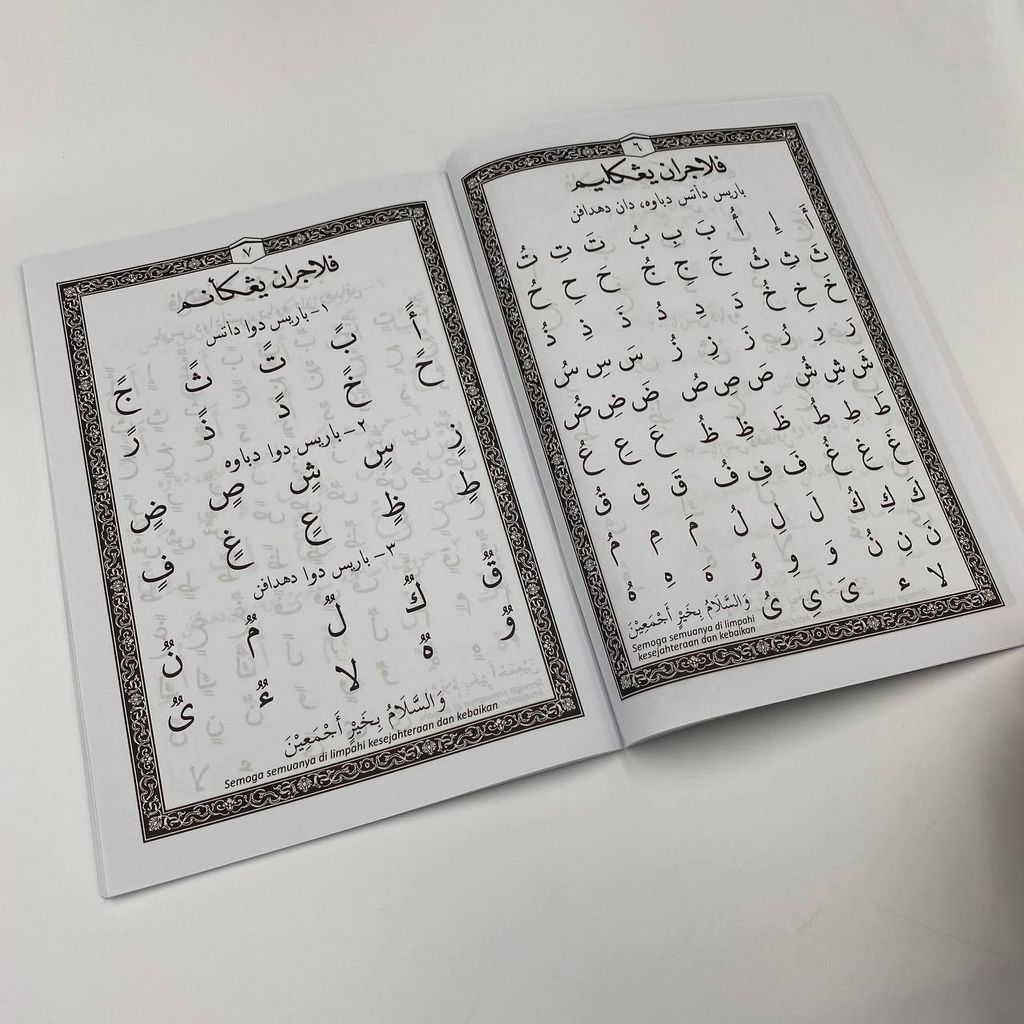 ٦
فلاجران يڠكليم
باريس دأتس دباوه، دان دهدافن
أَ إِ أُ بَ بِ بُ تَ تِ تُ
ثَ ثِ ثُ جَ جِ جُ حَ حِ حُ
خَ خِ خُ دَ دِ دُ ذَ ذِ ذُ
رَ رِ رُ زَ زِ زُ سَ سِ سُ
شَ شِ شُ صَ صِ صُ ضَ ضِ ضُ
طَ طِ طُ ظَ ظِ ظُ عَ عِ عُ
غَ غِ غُ فَ فِ فُ قَ قِ قُ
كَ كِ كُ لَ لِ لُ مَ مِ مُ
نَ نِ نُ وَ وِ وُ هَ هِ هُ
لا ء ىَ ىِ ىُ
وَالسَّلَامُ بِخَيْرٍ أَجْمَعِيْنَ
Semoga semuanya di limpahi
kesejahteraan dan kebaikan
٧
فلاجران يڠكأنم
١- باريس دوا دأتس
أً بً تً ثً جً
حً خً دً ذً رً
٢- باريس دوا دباوه
زٍ سٍ شٍ صٍ ضٍ
طٍ ظٍ عٍ غٍ فٍ
٣- باريس دوا دهدافن
قٌ كٌ لٌ مٌ نٌ
وٌ هٌ لا ءٌ ىٌ
وَالسَّلَامُ بِخَيْرٍ أَجْمَعِيْنَ
Semoga semuanya di limpahi kesejahteraan dan kebaikan